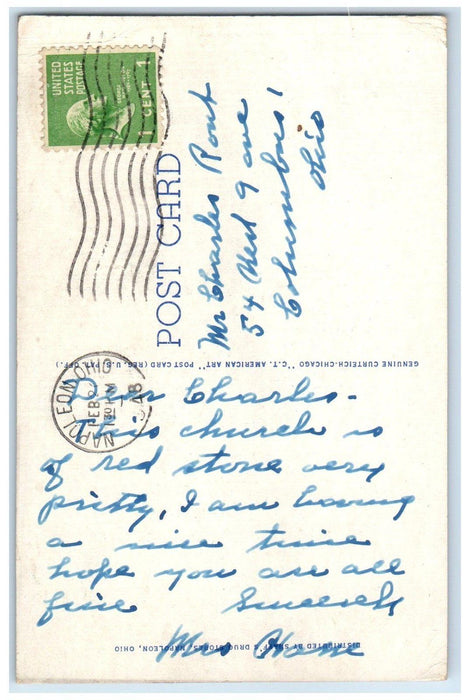 UNITED
STATES
POSTAGE
1 CENT 1
POST CARD
Mr Charles Rout
54 West 9 ave
Columbus,
Ohio
GENUINE CURTEICH-CHICAGO "C.T. AMERICAN ART" POST CARD (REG. U.S. PAT. OFF.)
NAPOLEON, OHIO
FEB 2
130 PM
1948
Dear Charles-
This church is
of red stone very
pretty, I am having
a nice time
hope you are all
fine Sincerely
Mrs
DISTRIBUTED BY DRUG STORES, NAPOLEON, OHIO